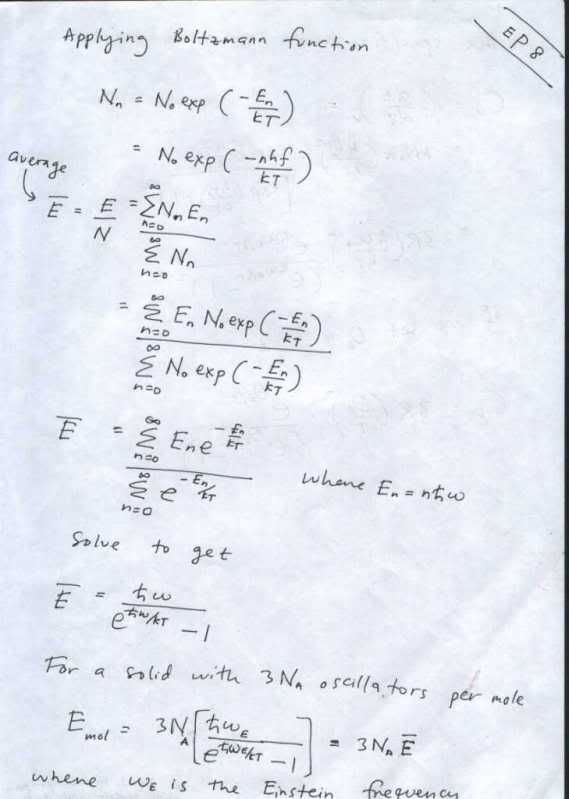 EP 8
Applying Boltzmann function
Nₙ = N₀ exp (-Eₙ/kT)
= N₀ exp (-nhf/kT)
average
E̅ = E/N = ∑ₙ₌₀^∞ Nₙ Eₙ / ∑ₙ₌₀^∞ Nₙ
= ∑ₙ₌₀^∞ Eₙ N₀ exp (-Eₙ/kT) / ∑ₙ₌₀^∞ N₀ exp (-Eₙ/kT)
E̅ = ∑ₙ₌₀^∞ Eₙ e^(-Eₙ/kT) / ∑ₙ₌₀^∞ e^(-Eₙ/kT) where Eₙ = nħω
Solve to get
E̅ = ħω / (e^(ħω/kT) - 1)
For a solid with 3 N_A oscillators per mole
E_mol = 3N_A [ħω_E / (e^(ħω_E/kT) - 1)] = 3 N_A E̅
where ω_E is the Einstein frequency